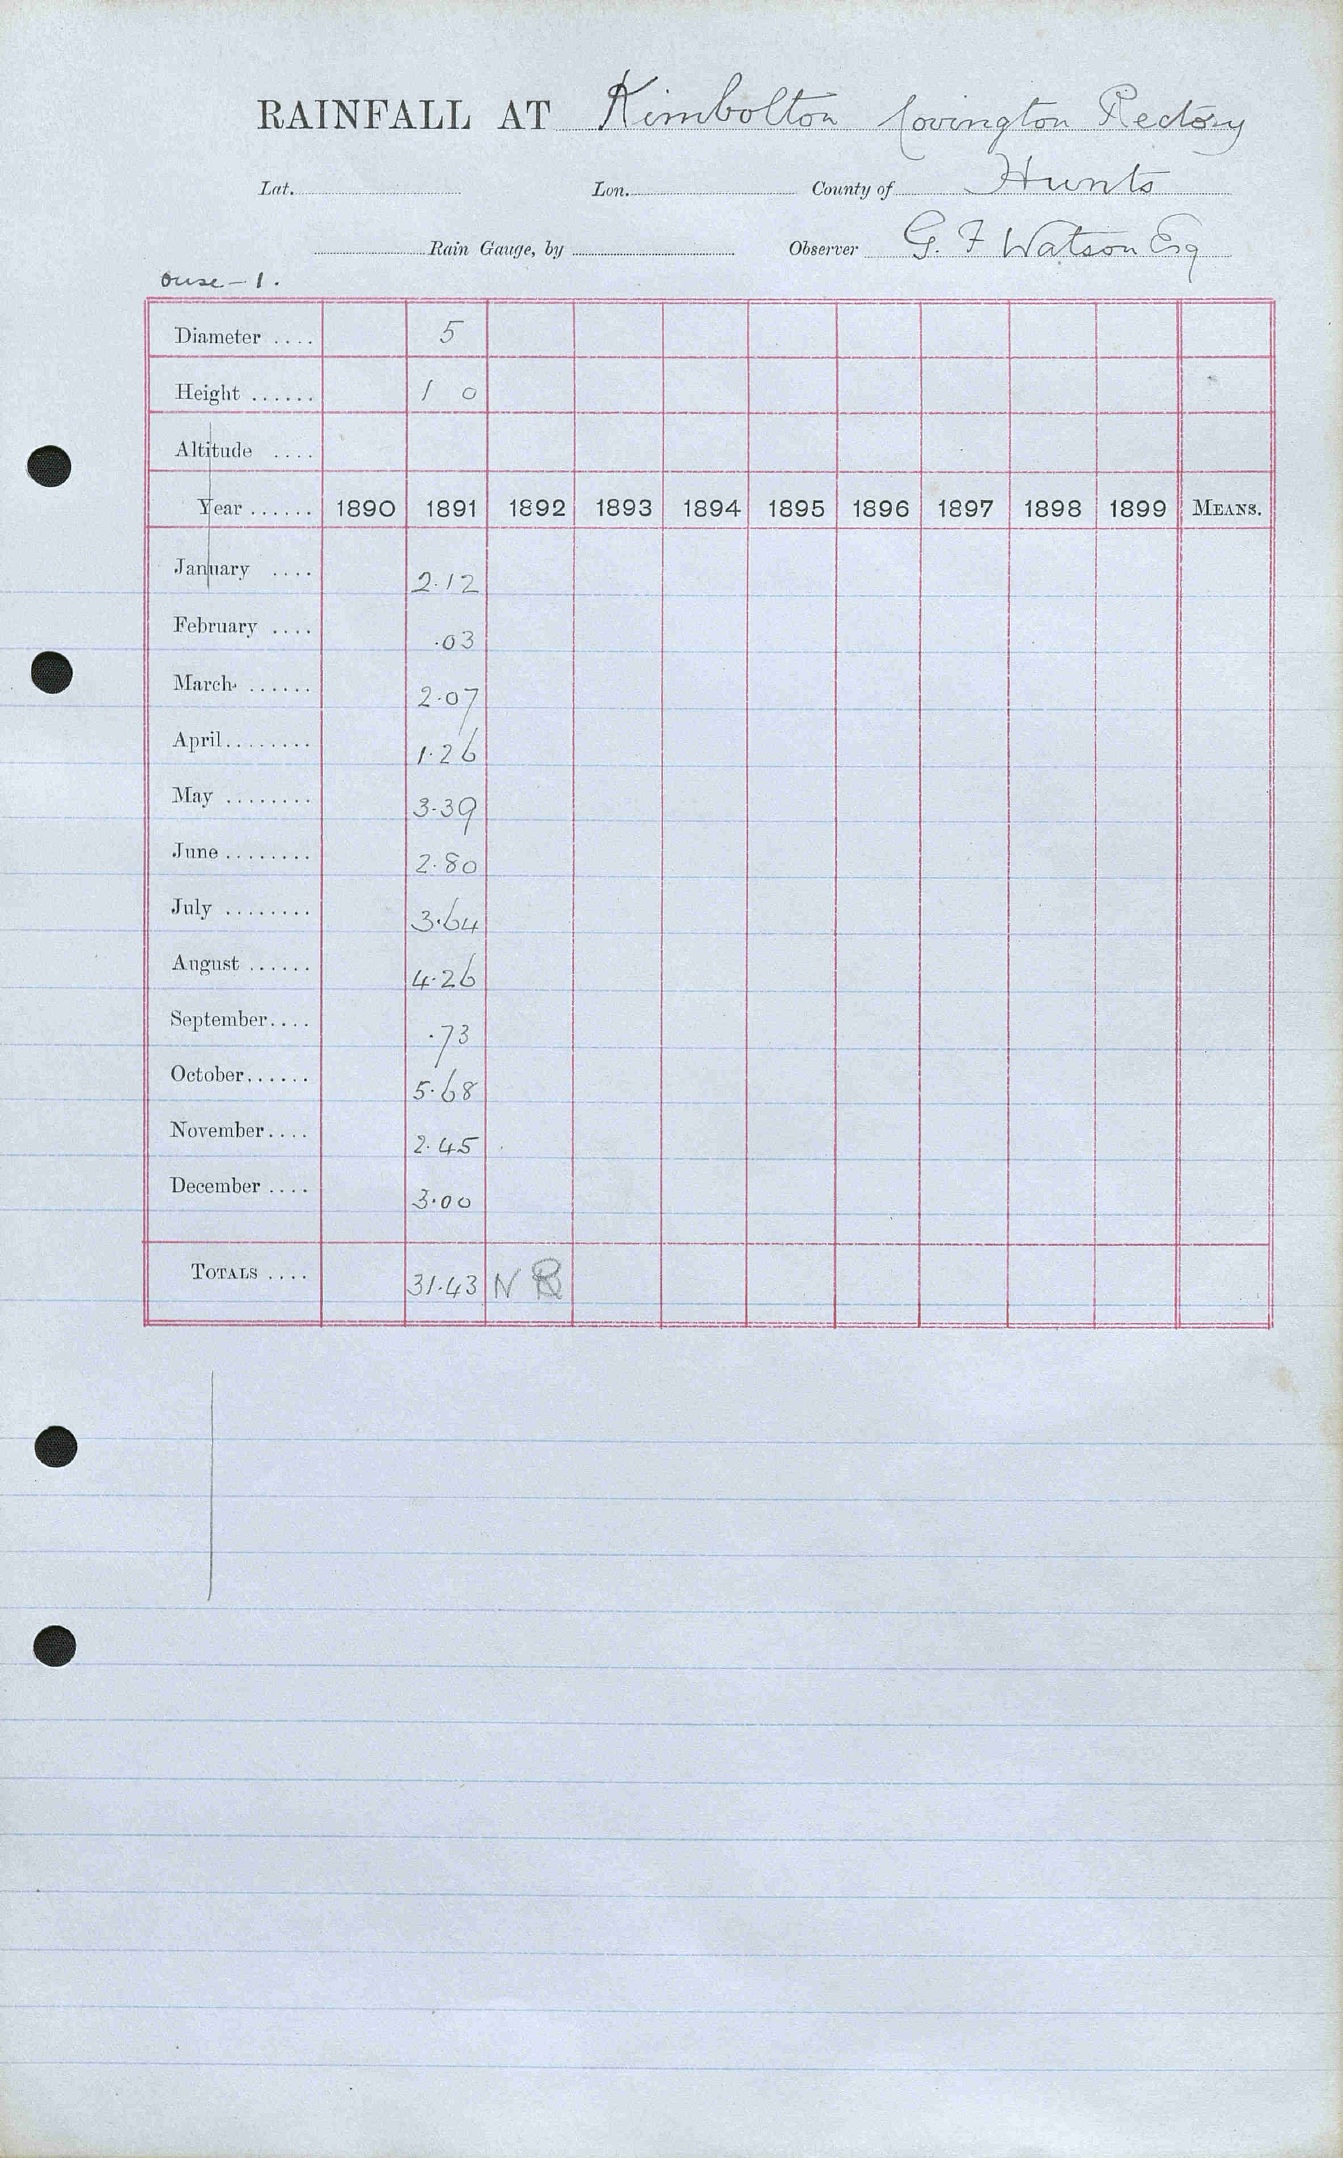 RAINFALL AT Kimbolton Covington Rectory
Lat. Lon. County of Hunts
Rain Gauge, by Observer G. F Watson Esq
Ouse - 1.
Diameter .... 5
Height ...... 1 0
Altitude ....
Year ...... 1890 1891 1892 1893 1894 1895 1896 1897 1898 1899 MEANS.
January .... 2.12
February .... .03
March ...... 2.07
April ........ 1.26
May ........ 3.39
June ........ 2.80
July ........ 3.64
August ...... 4.26
September.... .73
October...... 5.68
November.... 2.45
December .... 3.00
TOTALS .... 31.43 N R